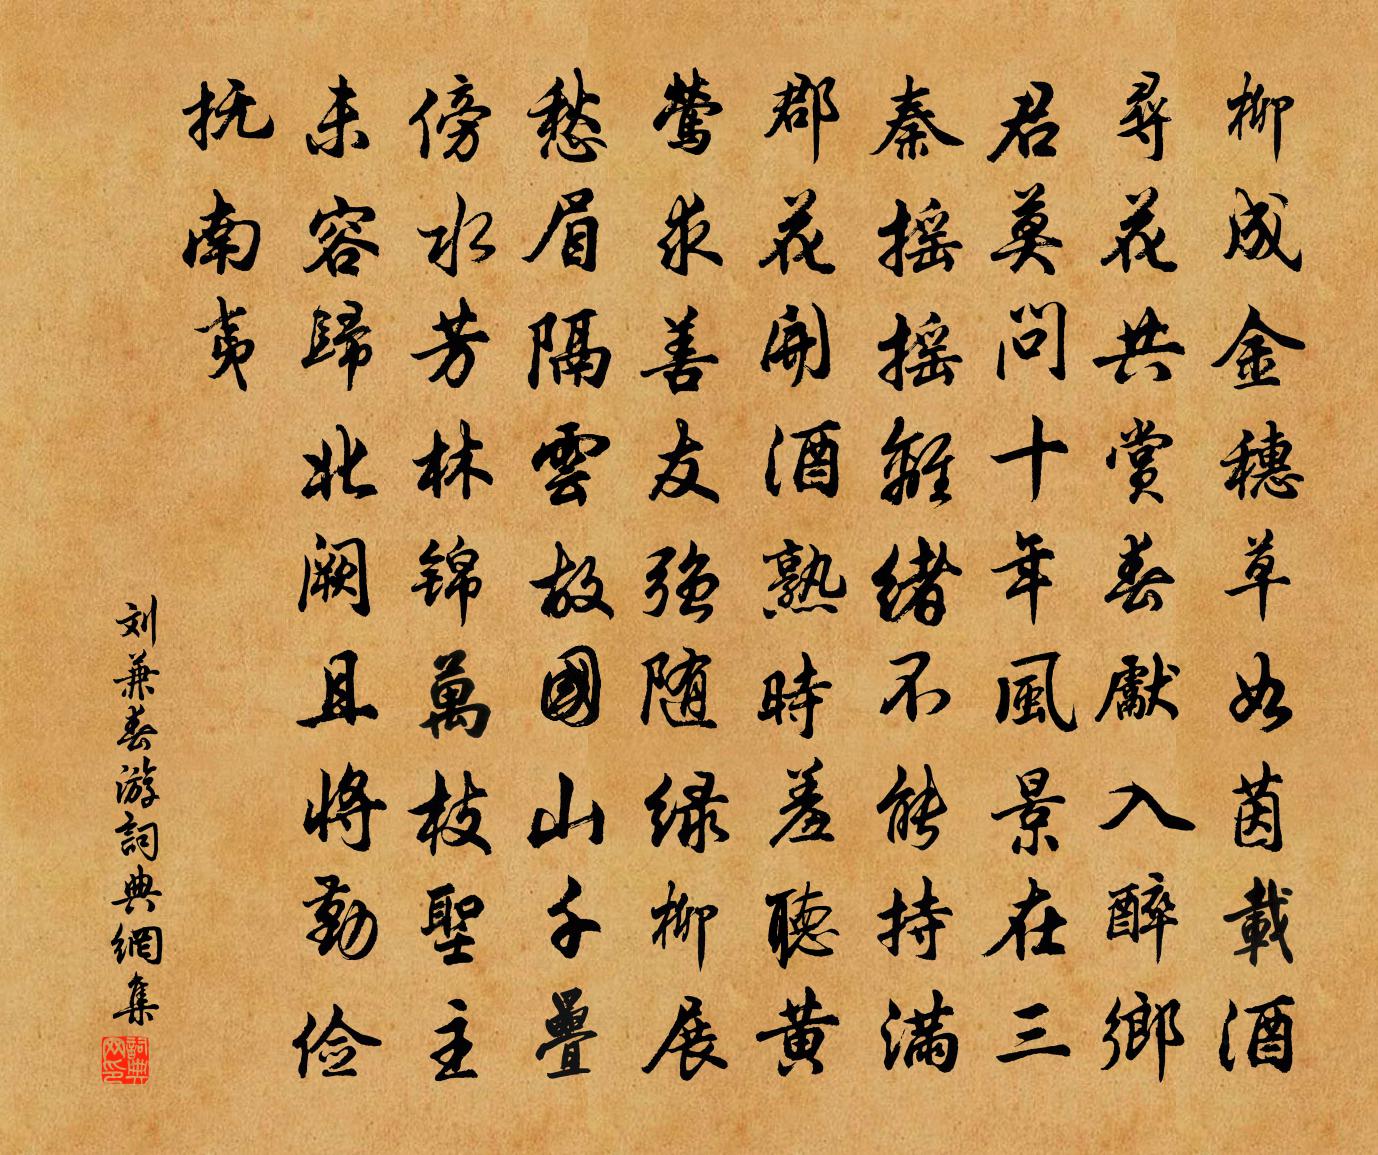 柳成金穗草如茵載酒
尋花共賞春獻入醉鄉
君莫問十年風景在三
秦摇摇離緒不能持滿
郡花開酒熟時羞聽黄
鶯求善友强随緑柳展
愁眉隔雲故國山千疊
傍水芳林锦萬枝聖主
未容歸北闕且將勤俭
抚南夷
刘兼春游詞典網集
詞典网印